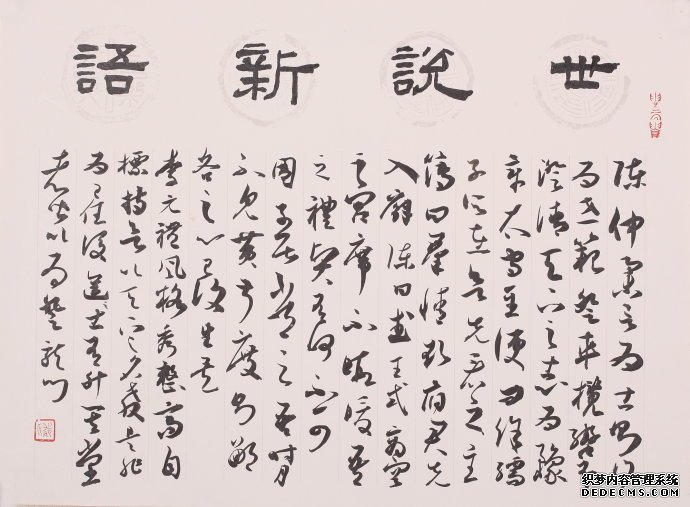 世說新語
陳仲舉言為士則行
為世範登車攬轡有
澄清天下之志為豫
章太守至便問徐孺
子所在欲先看之主
簿曰羣情欲府君先
入廨陳曰武王式商容
之閭席不暇煖吾
之禮賢有何不可
周子居常云吾時月
不見黃叔度則鄙
吝之心已復生矣
李元禮風格秀整高自
標持欲以天下名教是非
為己任後進士有升其堂
者皆以為登龍門
织梦内容管理系统
DEDECMS.COM